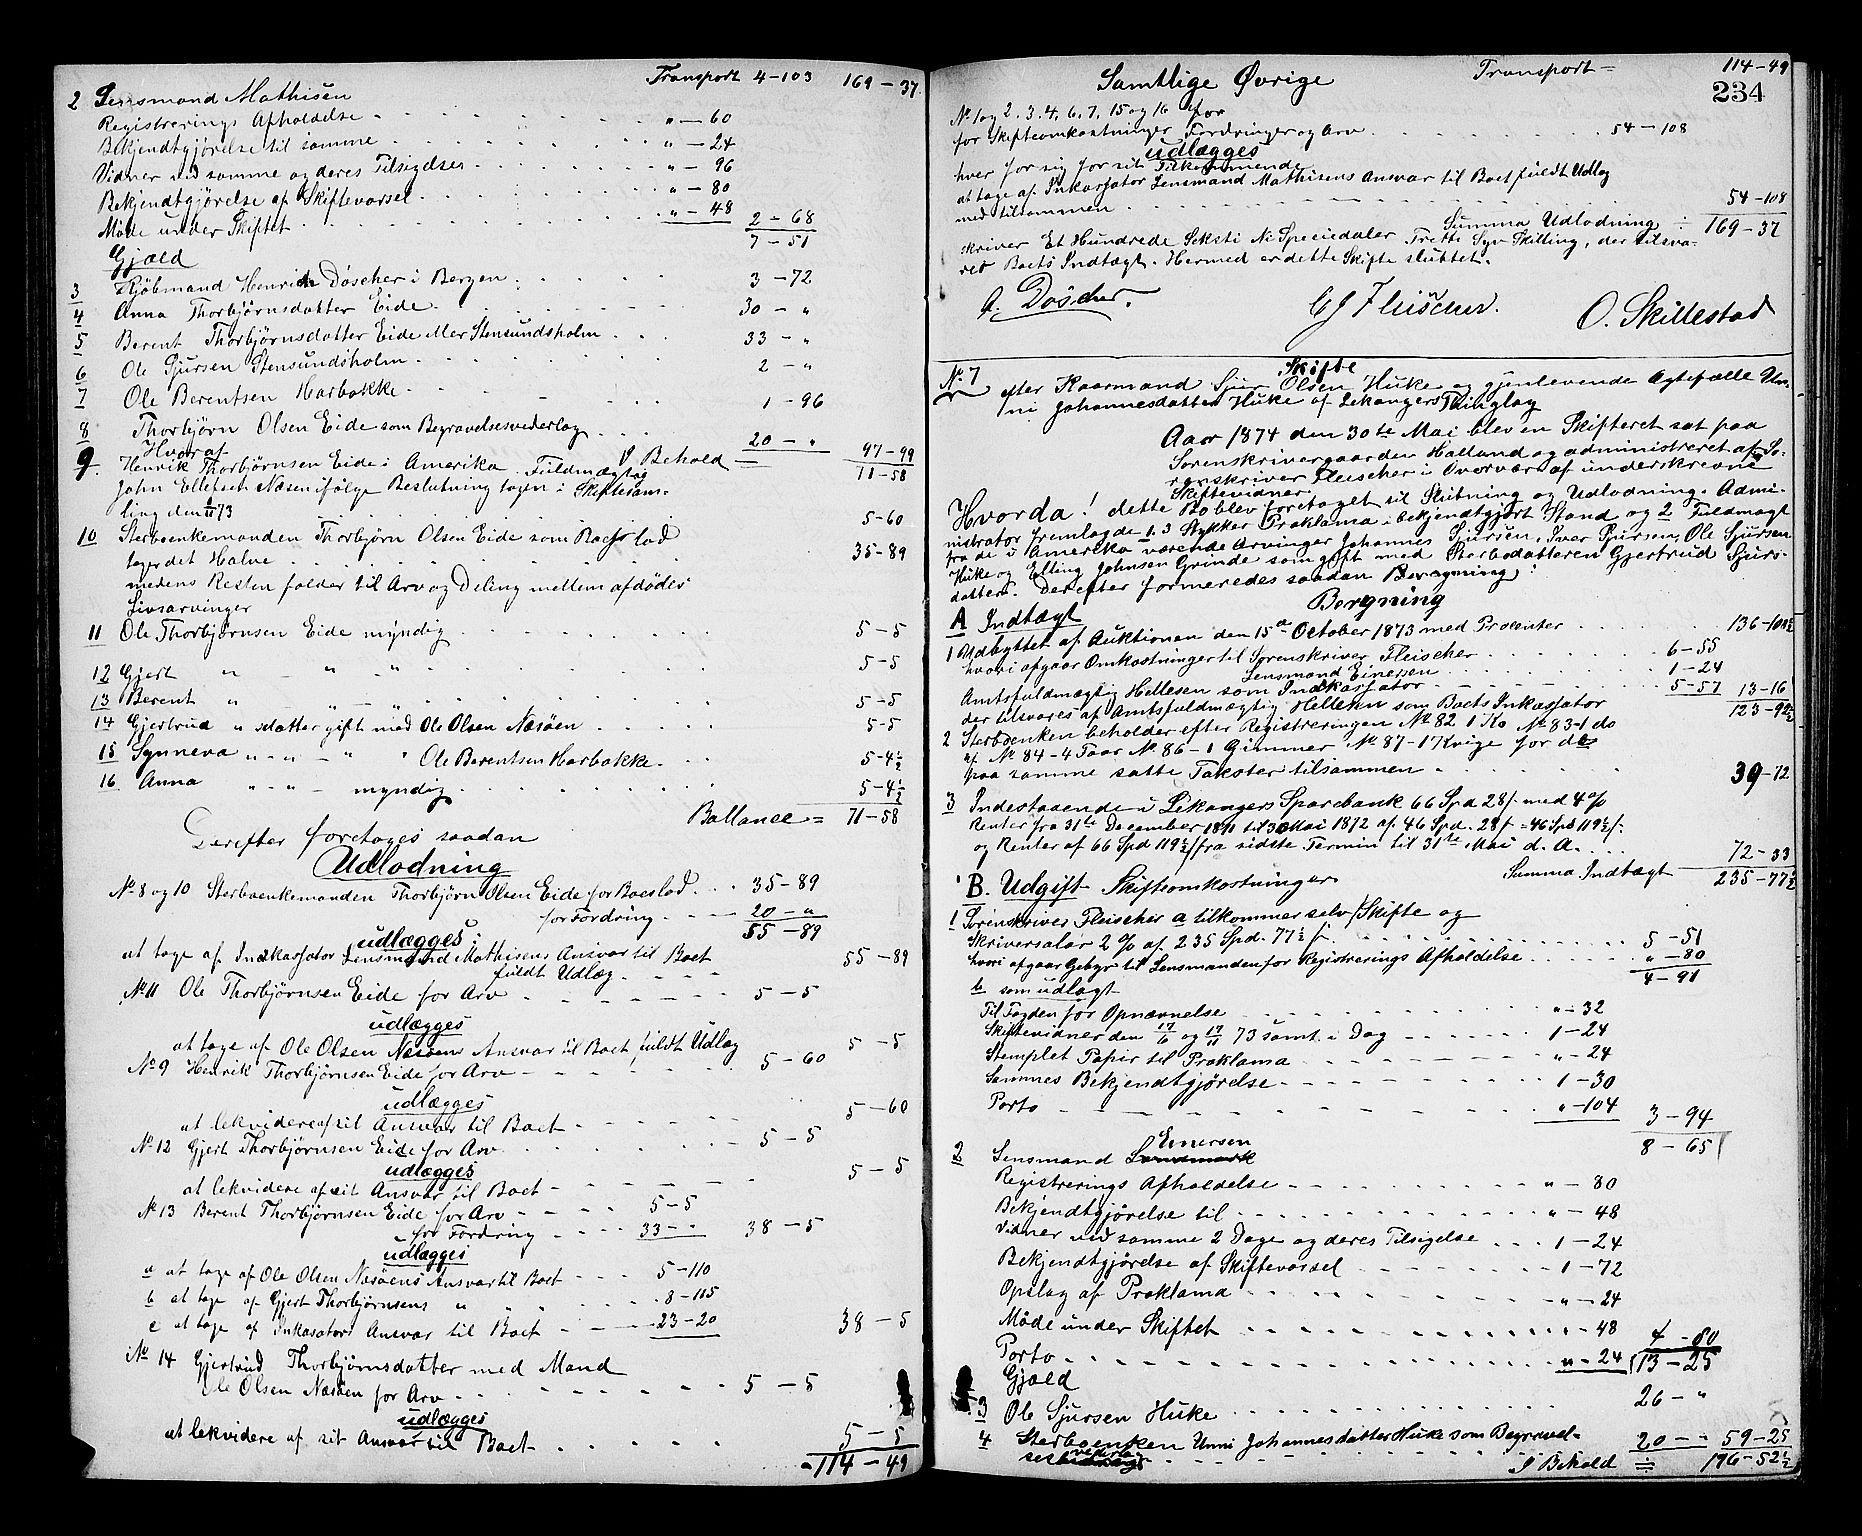 Transport 4-103 169-37
2 Lensmand Mathisen
Registrerings Afholdelse " - 60
Bekjendtgjørelse til samme " - 24
Vidner ved samme og deres Tilsigelser " - 96
Bekjendtgjørelse af Skiftevarsel " - 80
Møde under Skiftet " - 48 2 - 68
7 - 51
Gjæld
3 Kjøbmand Henrich Döscher i Bergen 3 - 72
4 Anna Thorbjørnsdatter Eide 30 - "
5 Berent Thorbjørnsdatter Eide eller Stensundsholm 33 - "
6 Ole Sjursen Stensundsholm 2 - "
7 Ole Berentsen Harbakke 1 - 96
8 Thorbjørn Olsen Eide som Begravelsesvederlag 20 - " 97 - 99
Hvoraf I Behold = 71 - 58
9. Henrik Thorbjørnsen Eide i Amerika. Fuldmægtig
John Ellefsen Næsen ifølge Beslutning tagen i Skiftesam-
ling den 73 5-60
10 Sterboenkemanden Thorbjørn Olsen Eide som Boeslod
tager det Halve 35-89
medens Resten falder til Arv og Deling mellem afdødes
Livsarvinger
11 Ole Thorbjørnsen Eide myndig 5 - 5
12 Gjert " " " 5 - 5
13 Berent " " " 5 - 5
14 Gjertrud " sdatter gift med Ole Olsen Næsøen 5 - 5
15 Synneva " " " " Ole Berentsen Harbakke 5 - 4½
16. Anna " " - myndig 5 - 4½
Ballance = 71 - 58
Derefter foretoges saadan
Udlodning
No 8 og 10 Sterboenkemanden Thorbjørn Olsen Eide for Boeslod 35 - 89
for Fordring 20 - "
55 - 89
udlægges:
at tage af Indkassator Lensmand Mathisens Ansvar til Boet 55 - 89
fuldt Udlæg
No 11 Ole Thorbjørnsen Eide for Arv 5 - 5
udlægges
at tage af Ole Olsen Næsøens Ansvar til Boet fuldt Udlæg 5 - 5
No 9 Henrik Thorbjørnsen Eide for Arv 5 - 60
udlægges
at lekvidere af sit Ansvar til Boet 5 - 60
No 12 Gjert Thorbjørnsen Eide for Arv 5 - 5
udlægges
at lekvidere af sit Ansvar til Boet 5 - 5
No 13 Berent Thorbjørnsen Eide for Arv 5 - 5
for Fordring 33 - " 38 - 5
udlægges
a at tage af Ole Olsen Næsøens Ansvar til Boet 5 - 110
b at tage af Gjert Thorbjørnsens " " 8 - 115
c at tage af Inkasators Ansvar til Boet 23 - 20 38 - 5
No 14 Gjertrud Thorbjørnsdatter med Mand
Ole Olsen Næsøen for Arv 5 - 5
udlægges
at lekvidere af sit Ansvar til Boet 5 - 5
114 - 49
Samtlige Øvrige Transport = 114-49
234
No 1 og 2. 3. 4. 6. 7. 15 og 16 for
for Skifteomkostninger Fordringer og Arv 54 - 108
udlægges
hver for sig for sit Tilkommende
at tage af Inkassator Lensmand Mathisens Ansvar til Boet fuldt Udlæg
med tilsammen 54 - 108
Summa Udlodning 169 - 37
skriver Et Hundrede Seksti Ni Speciedaler Trette Syv Skilling, der tilsva-
rer Boets Indtægt. Hermed er dette Skifte sluttet.
G. Döscher. CJ Fleischer. O. Skillestad
No 7 Skifte
efter Kaarmand Sjur Olsen Huke og gjenlevende Ægtefælle Un-
ni Johannesdatter Huke af Lekangers Thinglag
Aar 1874 den 30te Mai blev en Skifteret sat paa
Sorenskrivergaarden Halland og administreret af So-
renskriver Fleischer i Overvær af underskrevne
Skiftevidner.
Hvorda! dette Bo blev foretaget til Slutning og Udlodning. Admi-
nistrator fremlagde 1. 3 Stykker Proklama i bekjendtgjort Stand og 2 Fuldmagt
fra de i Amerika værende Arvinger Johannes Sjursen, Iver Sjursen, Ole Sjursen
Huke og Elling Johnsen Grinde som gift med Sterbodatteren Gjertrud Sjurs-
datter. Derefter formeredes saadan Beregning:
Beregning
A Indtægt
1 Udbyttet af Auktionen den 15de October 1873 med Procenter 136-108½
hvori afgaar Omkostninger til Sorenskriver Fleischer 6 - 55
Lensmand Einersen 1 - 24
Amtsfuldmægtig Hellesen som Indkassator 5 - 57 13 - 16
der tilsvares af Amtsfuldmægtig Hellesen som Boets Inkassator 123-92½
2 Sterboenken beholder efter Registreringen No 82 1 Ko No 83-1 do
af No 84 - 4 Faar No 86 - 1 Gimmer No 87 - 1 Kvige for de
paa samme satte Takster tilsammen 39-72
3 Indestaaende i Lekangers Sparebank 66 Spd 28 ß med 4 %
Renter fra 31te December 1871 til 30 Mai 1872 af 46 Spd. 28 ß = 46 Spd 119½ ß
og Renter af 66 Spd 119½ ß fra sidste Termin til 31te Mai d. A. 72 - 33
Summa Indtægt 235-77½
B. Udgift Skifteomkostninger
1 Sorenskriver Fleischer a tilkommer selv / Skifte og
Skriversalær 2 % af 235 Spd. 77½ ß 5 - 51
hvori afgaar Gebyr til Lensmanden for Registrerings Afholdelse " - 80
4 - 91
b som udlagt
Til Fogden for Opnævnelse " - 32
Skiftevidner den 17/6 og 17/11 73 samt i Dag 1 - 24
Stemplet Papir til Proklama " - 24
Sammes Bekjendtgjørelse 1 - 30
Porto " - 104 3 - 94
8 - 65
2 Lensmand Einersen
Registrerings Afholdelse " - 80
Bekjendtgjørelse til " - 48
Vidner ved samme 2 Dage og deres Tilsigelse 1 - 24
Bekjendtgjørelse af Skiftevarsel 1 - 72
Opslag af Proklama " - 24
Møde under Skiftet " - 48
Porto " - 24 4 - 80
13 - 25
Gjæld
3 Ole Sjursen Huke 26 - "
4 Sterboenken Unni Johannesdatter Huke som Begravel-
sesvederlag 20 - " 59 - 25
I Behold 176-52½